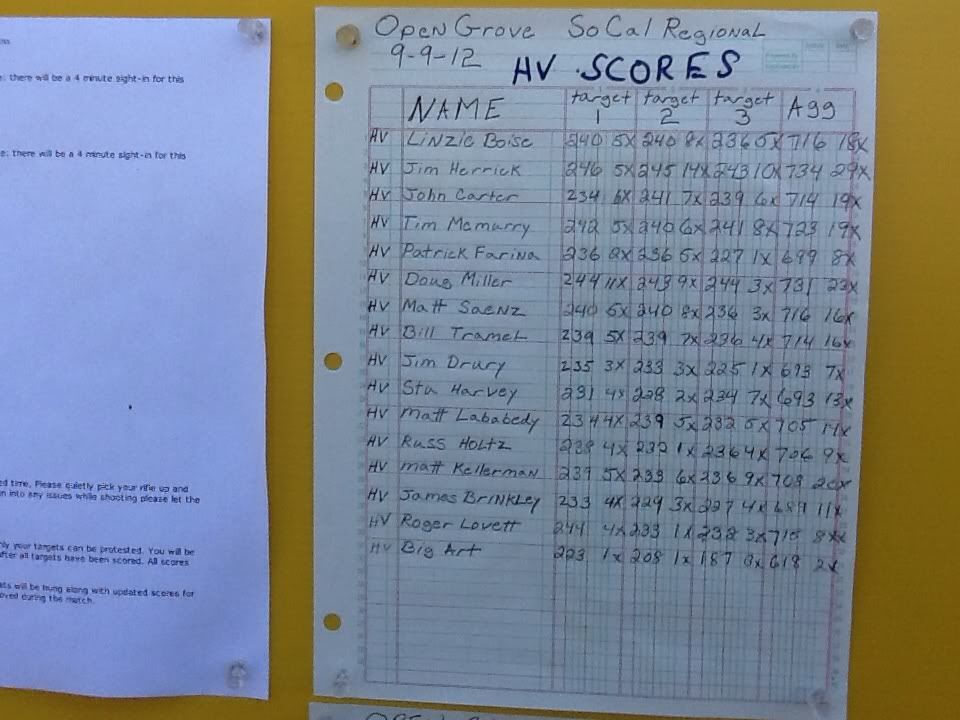 e: there will be a 4 minute sight-in for this
e: there will be a 4 minute sight-in for this
ed time. Please quietly pick your rifle up and
n into any issues while shooting please let the
nly your targets can be protested. You will be
after all targets have been scored. All scores
ets will be hung along with updated scores for
oved during the match.
Open Grove SoCal Regional
9-9-12 HV SCORES
NAME target 1 target 2 target 3 Agg
HV Linzie Boise 240 5x 240 8x 236 5x 716 18x
HV Jim Herrick 246 5x 245 14x 243 10x 734 29x
HV John Carter 234 6x 241 7x 239 6x 714 19x
HV Tim Mcmurry 242 5x 240 6x 241 8x 723 19x
HV Patrick Farina 236 2x 236 5x 227 1x 699 8x
HV Doug Miller 244 11x 243 9x 244 3x 731 23x
HV Matt Saenz 240 5x 240 8x 236 3x 716 16x
HV Bill Tramel 239 5x 239 7x 236 4x 714 16x
HV Jim Drury 235 3x 233 3x 225 1x 693 7x
HV Stu Harvey 231 4x 228 2x 234 7x 693 13x
HV Matt Lababedy 234 4x 239 5x 232 5x 705 14x
HV Russ Holtz 238 4x 232 1x 236 4x 706 9x
HV Matt Kellerman 239 5x 233 6x 236 9x 708 20x
HV James Brinkley 233 4x 229 3x 227 4x 689 11x
HV Roger Lovett 244 4x 233 1x 238 3x 715 8x
HV Big Art 223 1x 208 1x 187 0x 618 2x